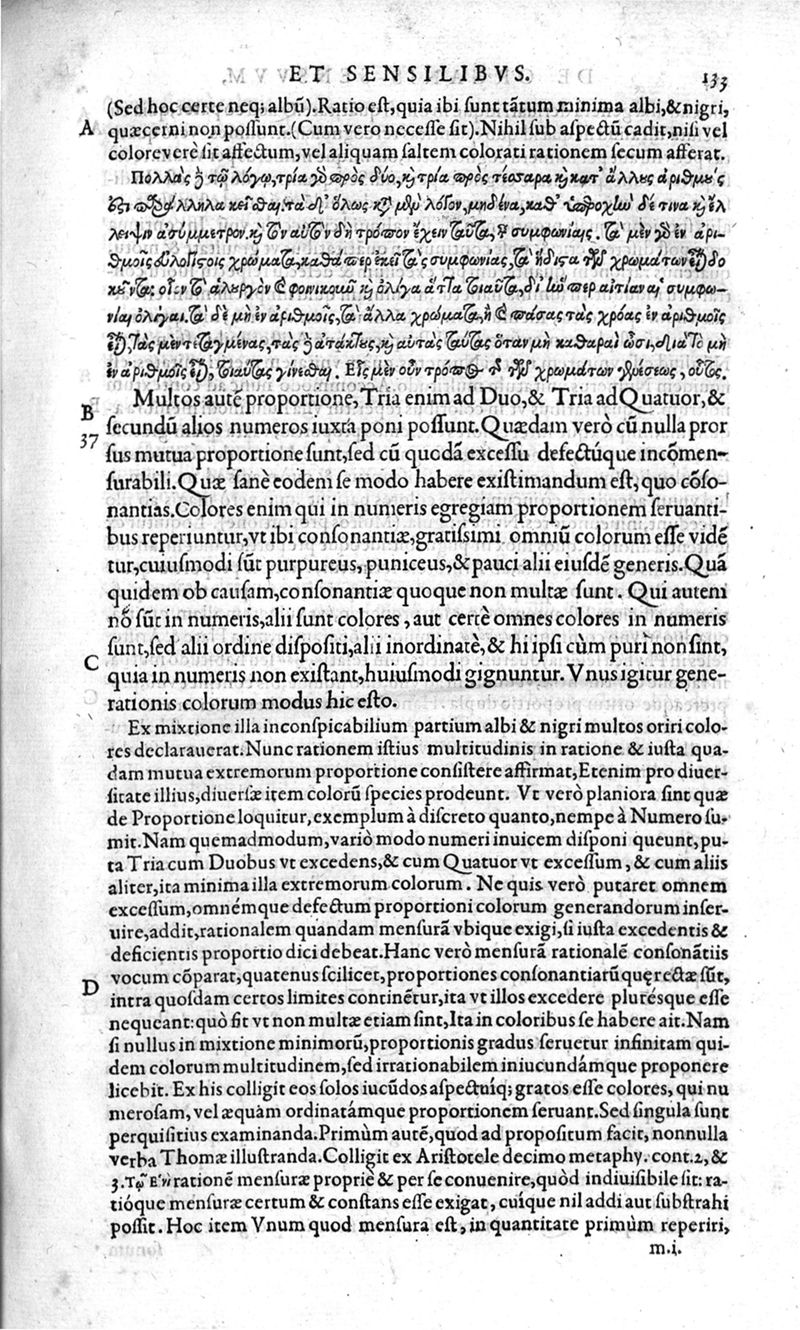 ET SENSILIBVS. 133
(Sed hoc certe neq; albū). Ratio est, quia ibi sunt tātum minima albi, & nigri,
A quæ cerni non possunt. (Cum vero necesse sit). Nihil sub aspectū cadit, nisi vel
colore verè sit affectum, vel aliquam saltem colorati rationem secum afferat.
Πολλὰς δὲ τῷ λόγῳ, τρία γὸ πρὸς δύο, κὴ τρία πρὸς τέσσαρα κὴ κατ' ἄλλους ἀριθμοὺς
ἔστι παρ' ἄλληλα κεῖσθαι· τὰ δ' ὅλως κτ μὲν λόγον, μηδένα, καθ' ὑπεροχὴν δέ τινα κὴ ἔλ
λειψιν ἀσύμμετρον. κὴ τὸν αὐτὸν δὴ τρόπον ἔχειν ταῦτα, ταῖς συμφωνίαις. τὰ μὲν γὸ ἐν ἀρι-
θμοῖς εὐλογίστοις χρώματα, καθάπερ ἐκεῖ τὰς συμφωνίας, τὰ ἥδιστα τῶν χρωμάτων εἶναι δο
κοῦντα· οἷον τὸ ἁλουργὸν κὴ φοινικοῦν κὴ ὀλίγα ἄττα τοιαῦτα, δι' ἥνπερ αἰτίαν αἱ συμφω-
νίαι ὀλίγαι. τὰ δὲ μὴ ἐν ἀριθμοῖς, τὰ ἄλλα χρώματα, ἢ κὴ πάσας τὰς χρόας ἐν ἀριθμοῖς
εἶναι, τὰς μὲν τεταγμένας, τὰς δὲ ἀτάκτους, κὴ αὐτὰς ταύτας ὅταν μὴ καθαραὶ ὦσι, διὰ τὸ μὴ
ἐν ἀριθμοῖς εἶναι, τοιαύτας γίνεσθαι. Εἷς μὲν οὖν τρόπος τῆς τῶν χρωμάτων γενέσεως, οὗτος.
B Multos autē proportione, Tria enim ad Duo, & Tria ad Quatuor, &
37 secundū alios numeros iuxta poni possunt. Quædam verò cū nulla pror
sus mutua proportione sunt, sed cū quodā excessu defectúque incōmen-
surabili. Quæ sanè eodem se modo habere existimandum est, quo cōso-
nantias. Colores enim qui in numeris egregiam proportionem seruanti-
bus reperiuntur, vt ibi consonantiæ, gratissimi omniū colorum esse vidē
tur, cuiusmodi sūt purpureus, puniceus, & pauci alii eiusdē generis. Quā
quidem ob causam, consonantiæ quoque non multæ sunt. Qui autem
nō sūt in numeris, alii sunt colores, aut certè omnes colores in numeris
sunt, sed alii ordine dispositi, alii inordinatè, & hi ipsi cùm puri non sint,
C quia in numeris non existant, huiusmodi gignuntur. Vnus igitur gene-
rationis colorum modus hic esto.
Ex mixtione illa inconspicabilium partium albi & nigri multos oriri colo-
res declarauerat. Nunc rationem istius multitudinis in ratione & iusta qua-
dam mutua extremorum proportione consistere affirmat, Etenim pro diuer-
sitate illius, diuersæ item colorū species prodeunt. Vt verò planiora sint quæ
de Proportione loquitur, exemplum à discreto quanto, nempe à Numero su-
mit. Nam quemadmodum, variò modo numeri inuicem disponi queunt, pu-
ta Tria cum Duobus vt excedens, & cum Quatuor vt excessum, & cum aliis
aliter, ita minima illa extremorum colorum. Ne quis verò putaret omnem
excessum, omnémque defectum proportioni colorum generandorum inser-
uire, addit, rationalem quandam mensurā vbique exigi, si iusta excedentis &
deficientis proportio dici debeat. Hanc verò mensurā rationalē consonātiis
vocum cōparat, quatenus scilicet, proportiones consonantiarū quę rectæ sūt,
D intra quosdam certos limites continētur, ita vt illos excedere plurésque esse
nequeant: quò fit vt non multæ etiam sint, Ita in coloribus se habere ait. Nam
si nullus in mixtione minimorū, proportionis gradus seruetur infinitam qui-
dem colorum multitudinem, sed irrationabilem iniucundámque proponere
licebit. Ex his colligit eos solos iucūdos aspectuíq; gratos esse colores, qui nu
merosam, vel æquam ordinatámque proportionem seruant. Sed singula sunt
perquisitius examinanda. Primùm autē, quod ad propositum facit, nonnulla
verba Thomæ illustranda. Colligit ex Aristotele decimo metaphy. cont. 2, &
3. Τῷ Ἑνὶ rationē mensuræ propriè & per se conuenire, quòd indiuisibile sit: ra-
tióque mensuræ certum & constans esse exigat, cuíque nil addi aut substrahi
possit. Hoc item Vnum quod mensura est, in quantitate primùm reperiri,
m.i.